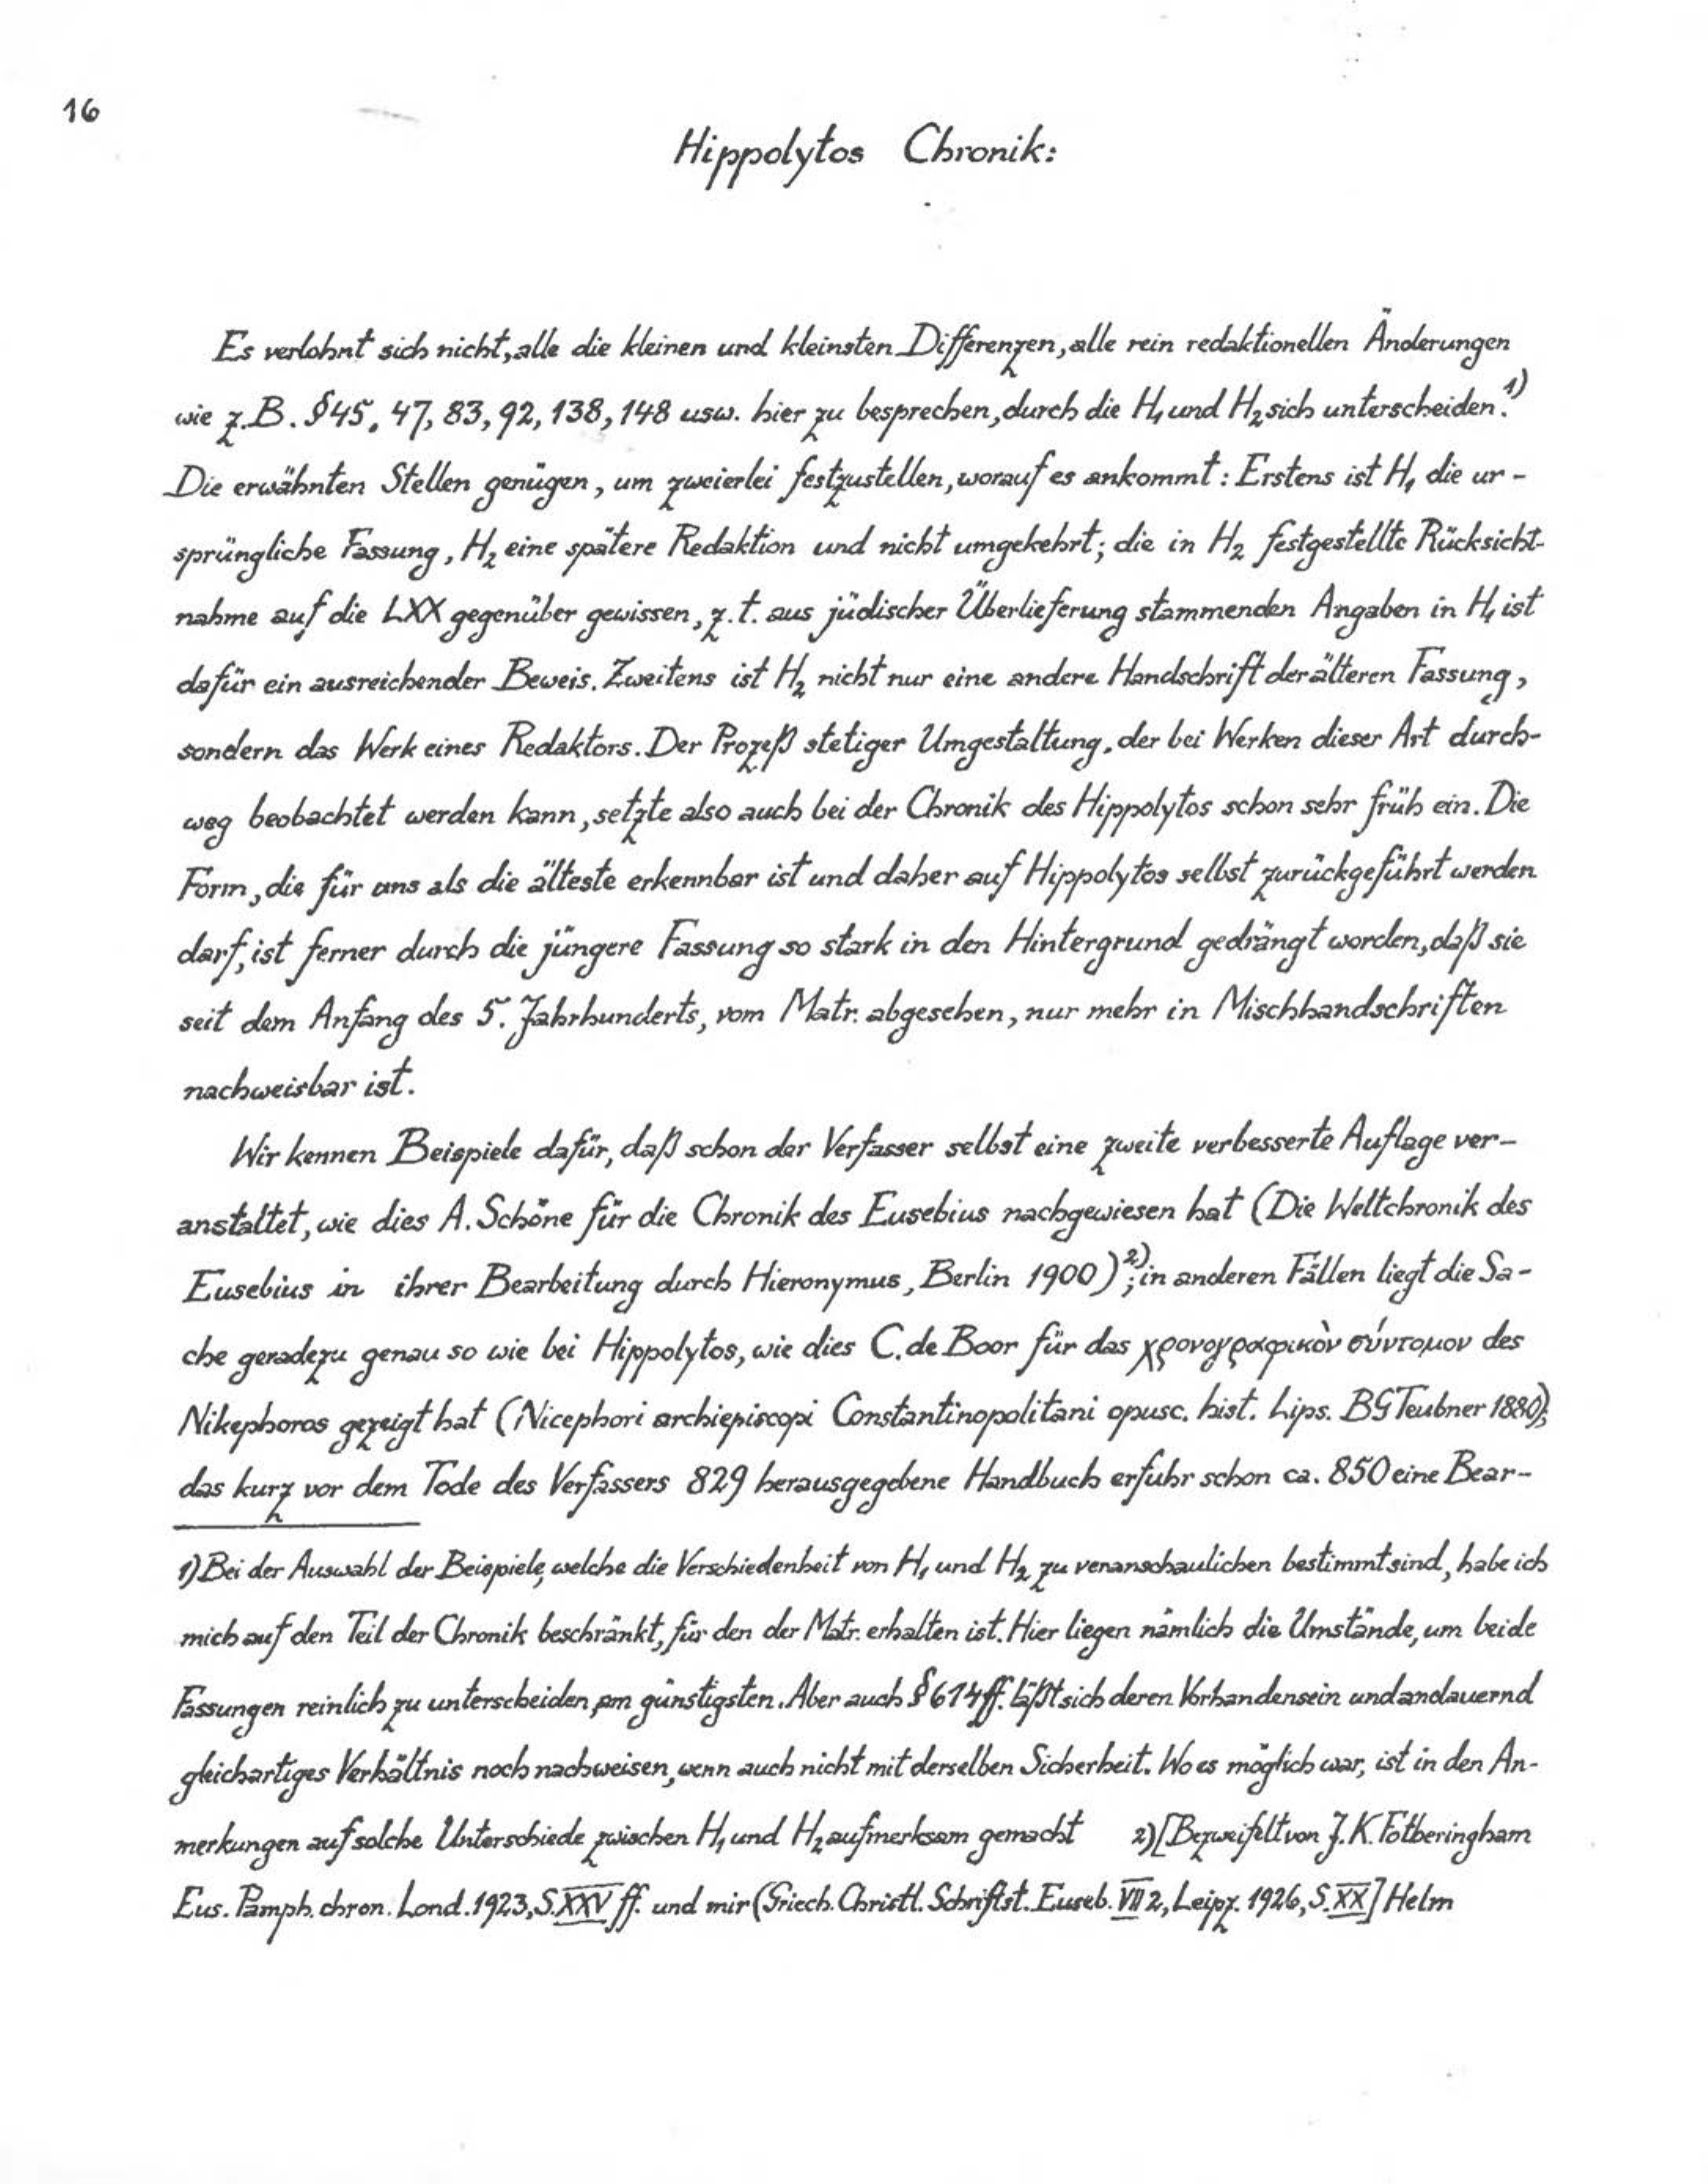 16
Hippolytos Chronik:
Es verlohnt sich nicht, alle die kleinen und kleinsten Differenzen, alle rein redaktionellen Änderungen
wie z.B. §45, 47, 83, 92, 138, 148 usw. hier zu besprechen, durch die H₁ und H₂ sich unterscheiden.¹⁾
Die erwähnten Stellen genügen, um zweierlei festzustellen, worauf es ankommt: Erstens ist H₁ die ur-
sprüngliche Fassung, H₂ eine spätere Redaktion und nicht umgekehrt; die in H₂ festgestellte Rücksicht-
nahme auf die LXX gegenüber gewissen, z.t. aus jüdischer Überlieferung stammenden Angaben in H₁ ist
dafür ein ausreichender Beweis. Zweitens ist H₂ nicht nur eine andere Handschrift der älteren Fassung,
sondern das Werk eines Redaktors. Der Prozeß stetiger Umgestaltung, der bei Werken dieser Art durch-
weg beobachtet werden kann, setzte also auch bei der Chronik des Hippolytos schon sehr früh ein. Die
Form, die für uns als die älteste erkennbar ist und daher auf Hippolytos selbst zurückgeführt werden
darf, ist ferner durch die jüngere Fassung so stark in den Hintergrund gedrängt worden, daß sie
seit dem Anfang des 5. Jahrhunderts, vom Matr. abgesehen, nur mehr in Mischhandschriften
nachweisbar ist.
Wir kennen Beispiele dafür, daß schon der Verfasser selbst eine zweite verbesserte Auflage ver-
anstaltet, wie dies A. Schöne für die Chronik des Eusebius nachgewiesen hat (Die Weltchronik des
Eusebius in ihrer Bearbeitung durch Hieronymus, Berlin 1900)²⁾; in anderen Fällen liegt die Sa-
che geradezu genau so wie bei Hippolytos, wie dies C. de Boor für das χρονογραφικὸν σύντομον des
Nikephoros gezeigt hat (Nicephori archiepiscopi Constantinopolitani opusc. hist. Lips. BG Teubner 1880);
das kurz vor dem Tode des Verfassers 829 herausgegebene Handbuch erfuhr schon ca. 850 eine Bear-
1) Bei der Auswahl der Beispiele, welche die Verschiedenheit von H₁ und H₂ zu veranschaulichen bestimmt sind, habe ich
mich auf den Teil der Chronik beschränkt, für den der Matr. erhalten ist. Hier liegen nämlich die Umstände, um beide
Fassungen reinlich zu unterscheiden, am günstigsten. Aber auch §614ff. läßt sich deren Vorhandensein und andauernd
gleichartiges Verhältnis noch nachweisen, wenn auch nicht mit derselben Sicherheit. Wo es möglich war, ist in den An-
merkungen auf solche Unterschiede zwischen H₁ und H₂ aufmerksam gemacht 2) [Bezweifelt von J.K. Fotheringham
Eus. Pamph. chron. Lond. 1923, S. XXV ff. und mir (Griech. Christl. Schriftst. Euseb. VII 2, Leipz. 1926, S. XX] Helm